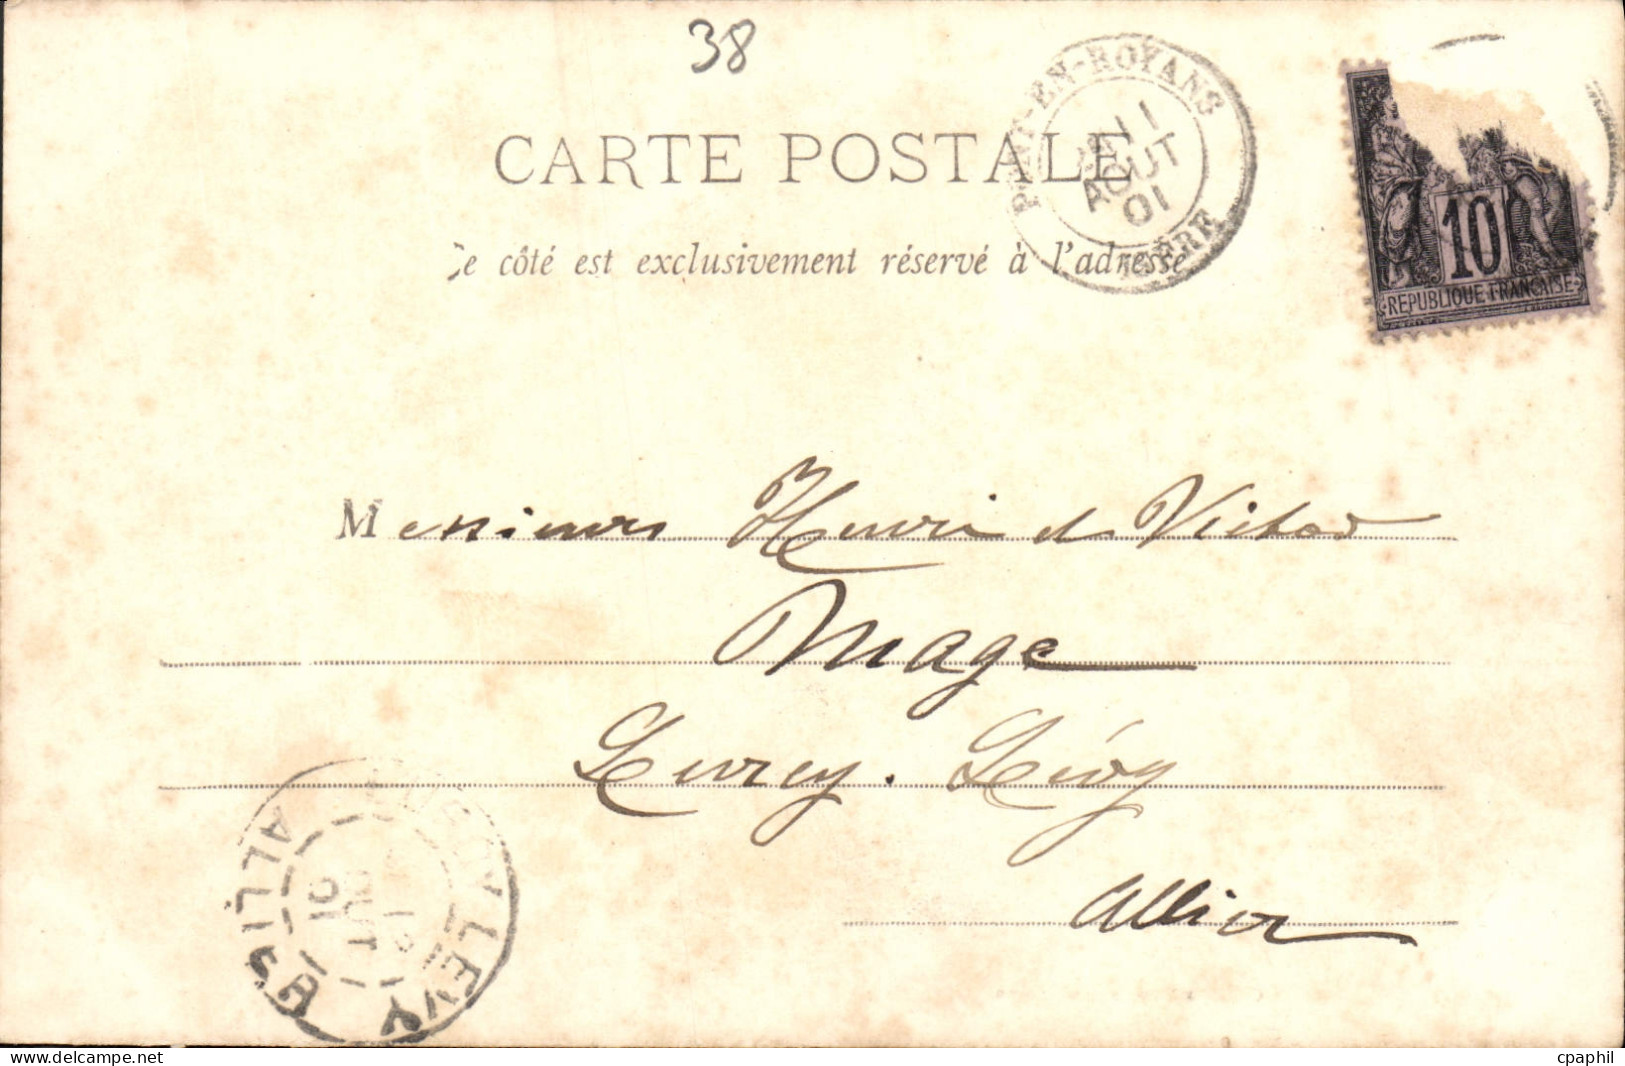 38
CARTE POSTALE
Ce côté est exclusivement réservé à l'adresse
PONT-EN-ROYANS
11
AOUT
01
ISÈRE
10
REPUBLIQUE FRANÇAISE
Messieurs Henri et Victor
Mage
Lurcy. Lévy
Allier
LEVY
ALLIER
cpaphil